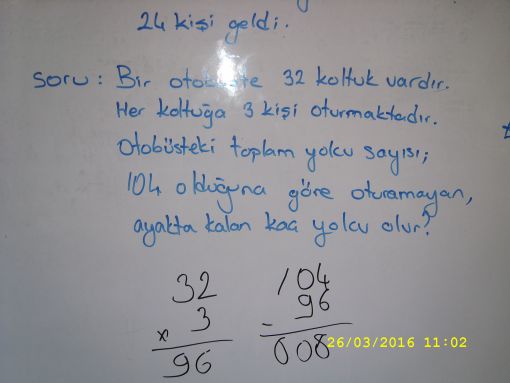 24 kişi geldi.
Soru: Bir otobüste 32 koltuk vardır.
Her koltuğa 3 kişi oturmaktadır.
Otobüsteki toplam yolcu sayısı;
104 olduğuna göre oturamayan,
ayakta kalan kaç yolcu olur?
32 104
x 3 - 96
96 008
26/03/2016 11:02